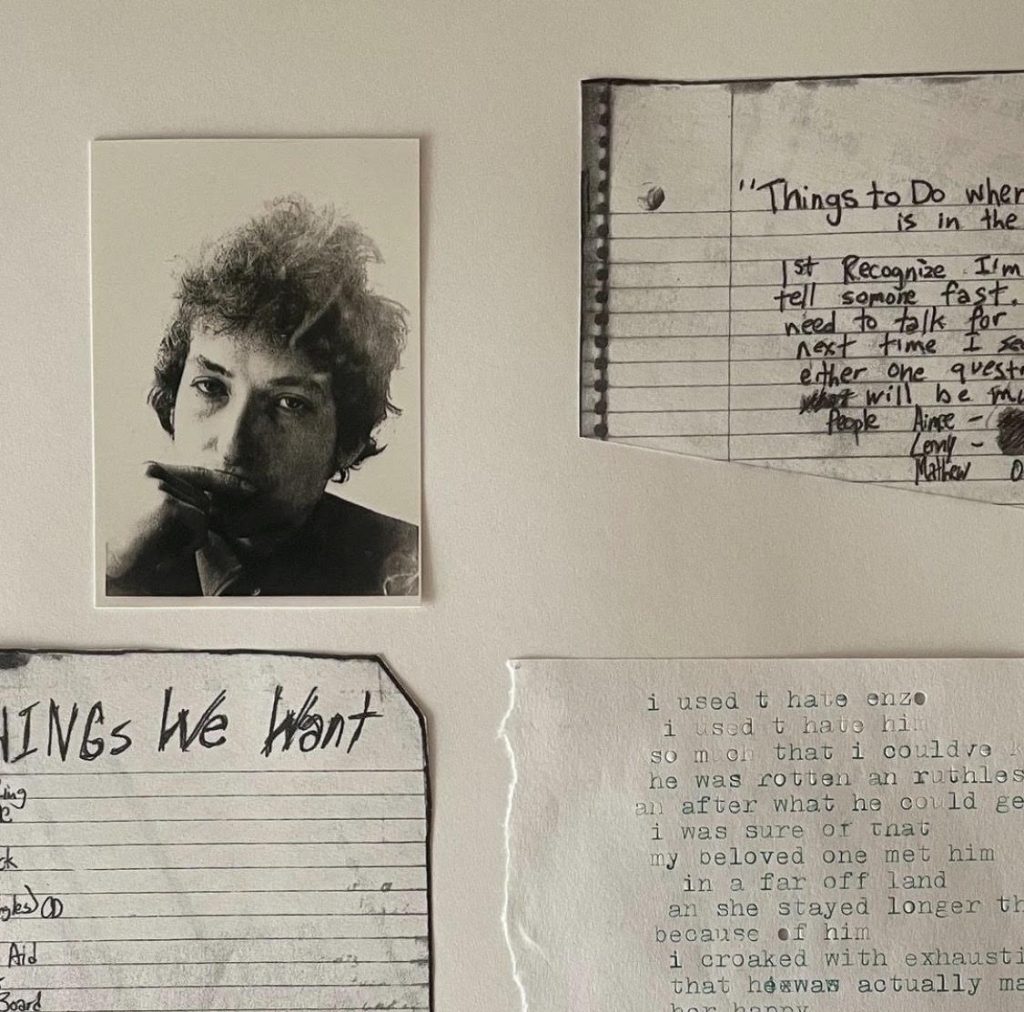 "Things to Do when
is in the
1st Recognize I'm
tell somone fast.
need to talk for
next time I
either one
will be
People Aimee -
Lenny -
Mathew
HINGs We Want
Aid
Board
CD
i used t hate enzo
i used t hate him
so m ch that i couldve k
he was rotten an ruthles
an after what he could ge
i was sure of that
my beloved one met him
in a far off land
an she stayed longer th
because of him
i croaked with exhausti
that was actually ma
her happy